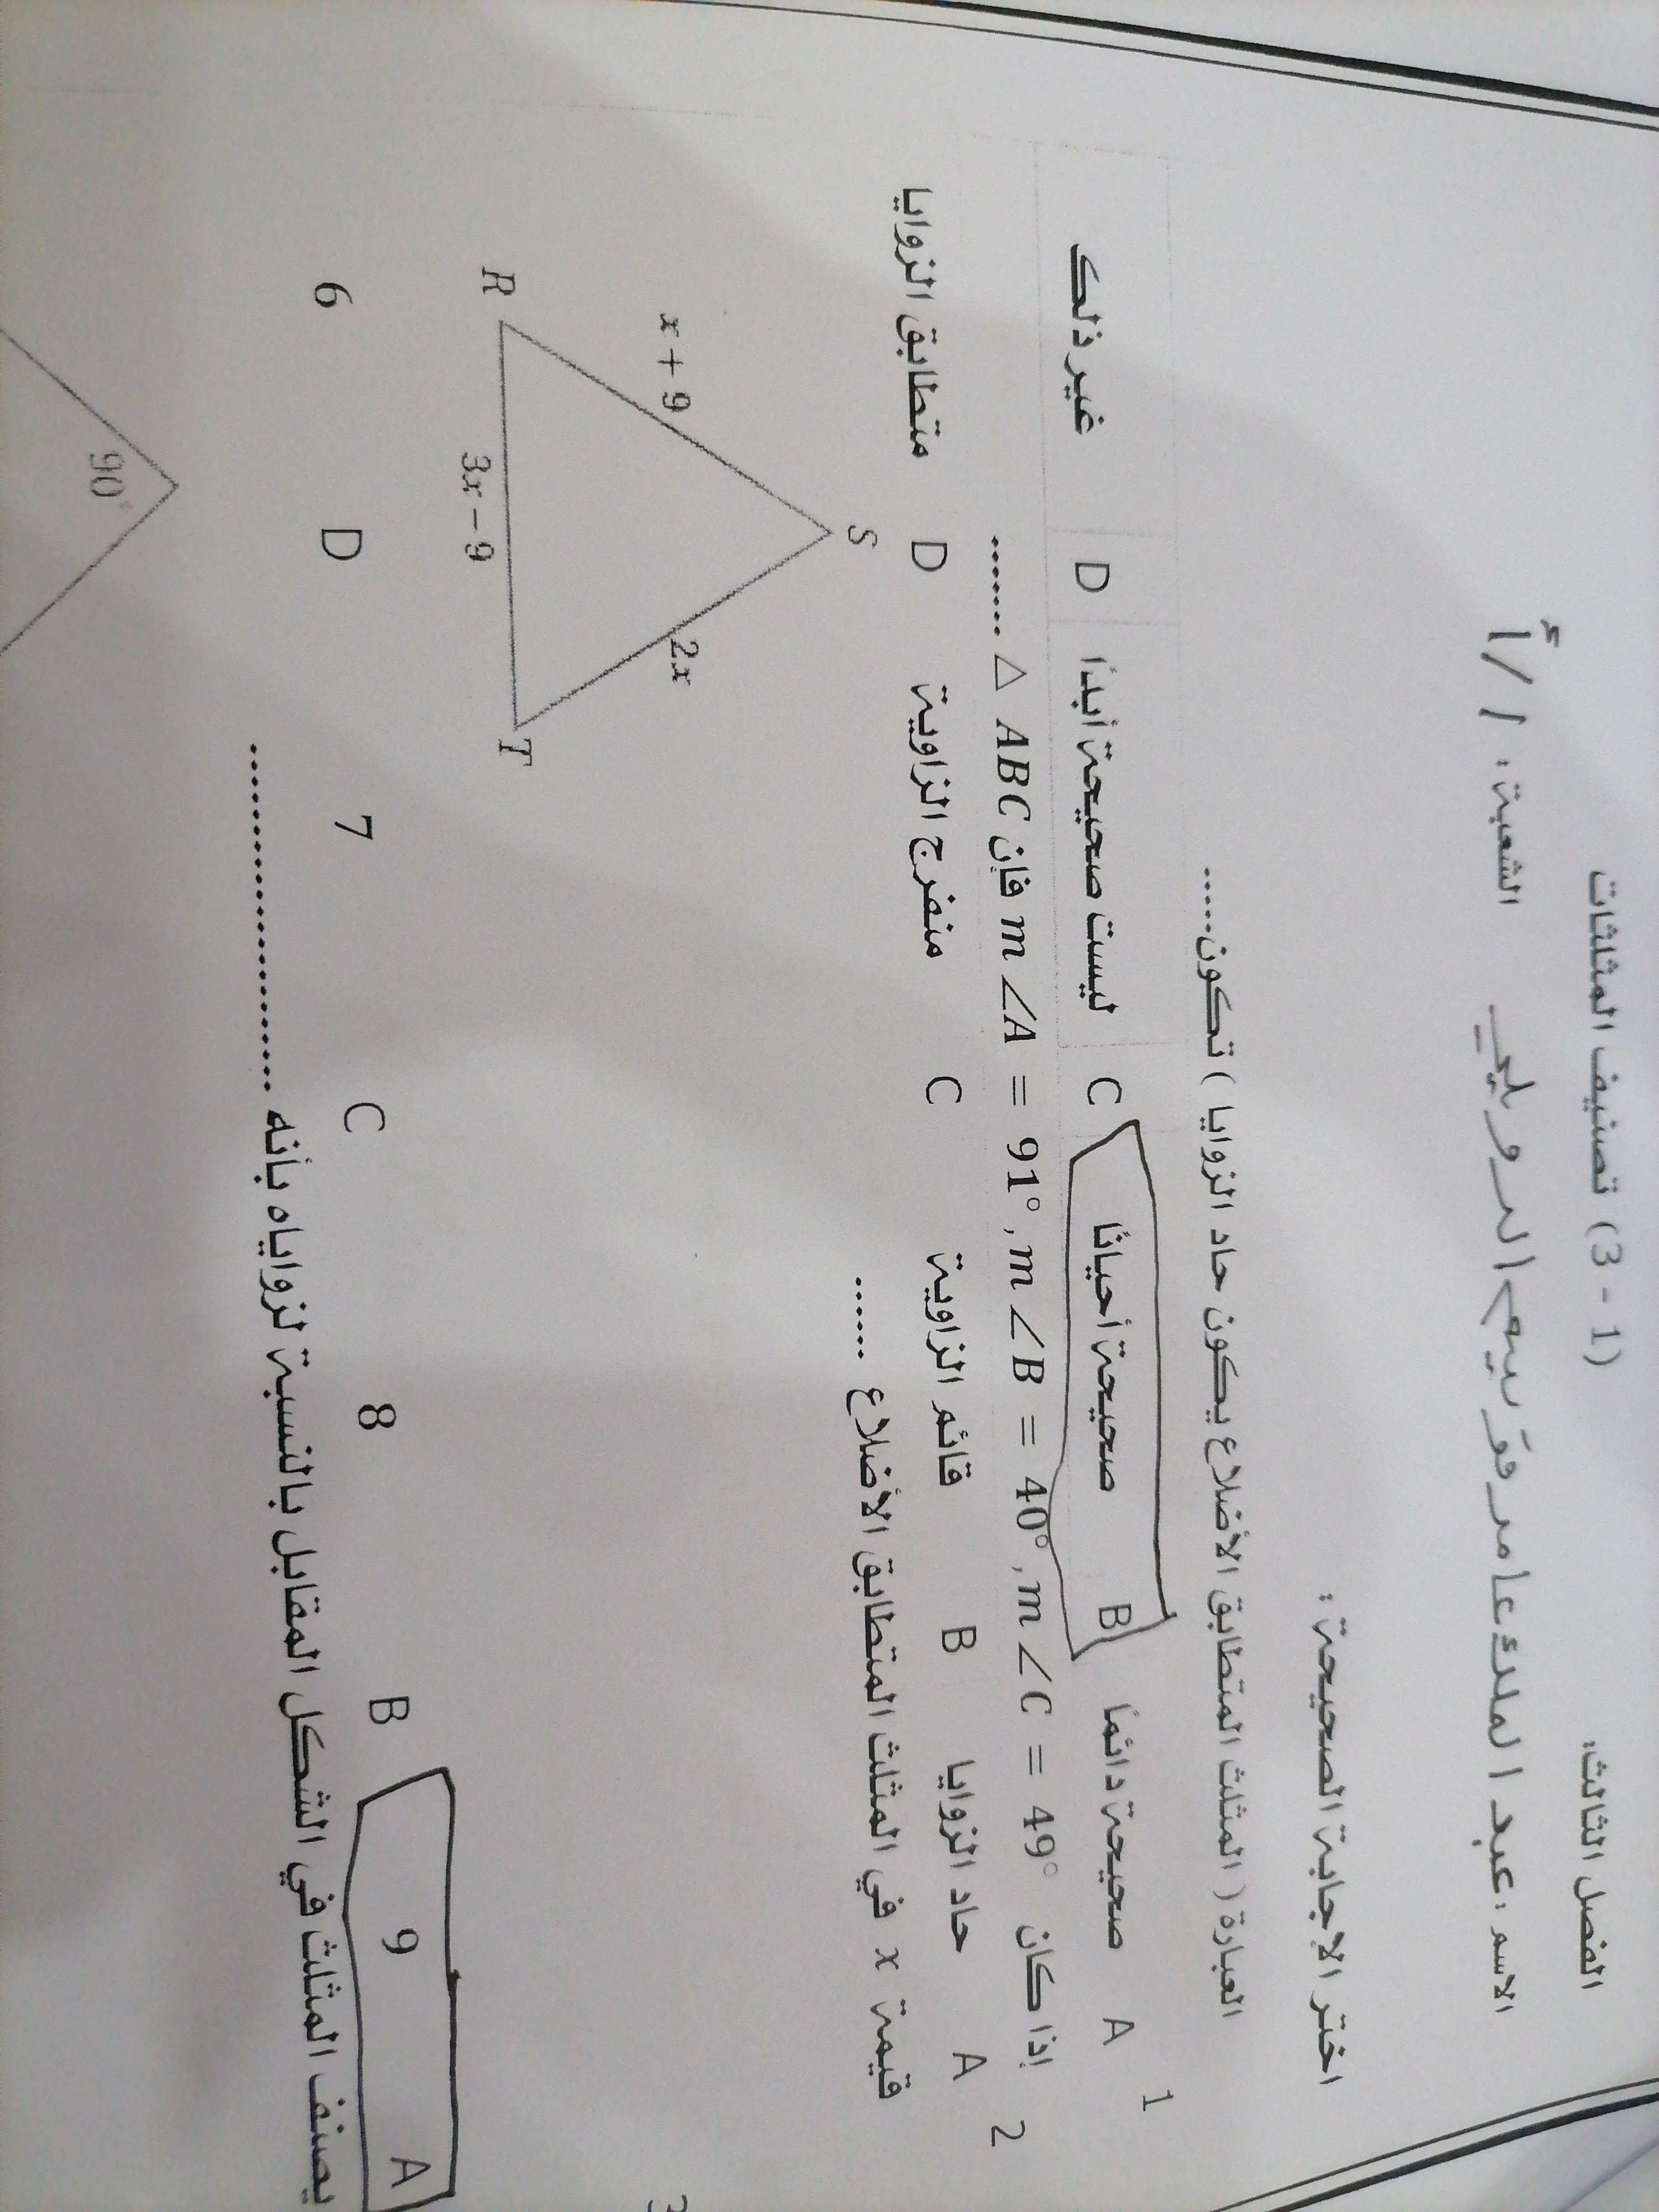 الفصل الثالث: تصنيف المثلثات (1 - 3)
الاسم: عبد الملك عامر الشعبة: 1/أ
اختر الإجابة الصحيحة :
1 العبارة ( المثلث المتطابق الأضلاع يكون حاد الزوايا ) تكون......
A صحيحة دائمًا B صحيحة أحيانًا C ليست صحيحة أبدًا D غير ذلك
2 إذا كان m ∠A = 91° , m ∠B = 40° , m ∠C = 49° فإن △ ABC .......
A حاد الزوايا B قائم الزاوية C منفرج الزاوية D متطابق الزوايا
قيمة x في المثلث المتطابق الأضلاع .......
3
S
x + 9
2x
R
3x − 9
T
A 9 B 8 C 7 D 6
يصنف المثلث في الشكل المقابل بالنسبة لزواياه بأنه ........................
90°